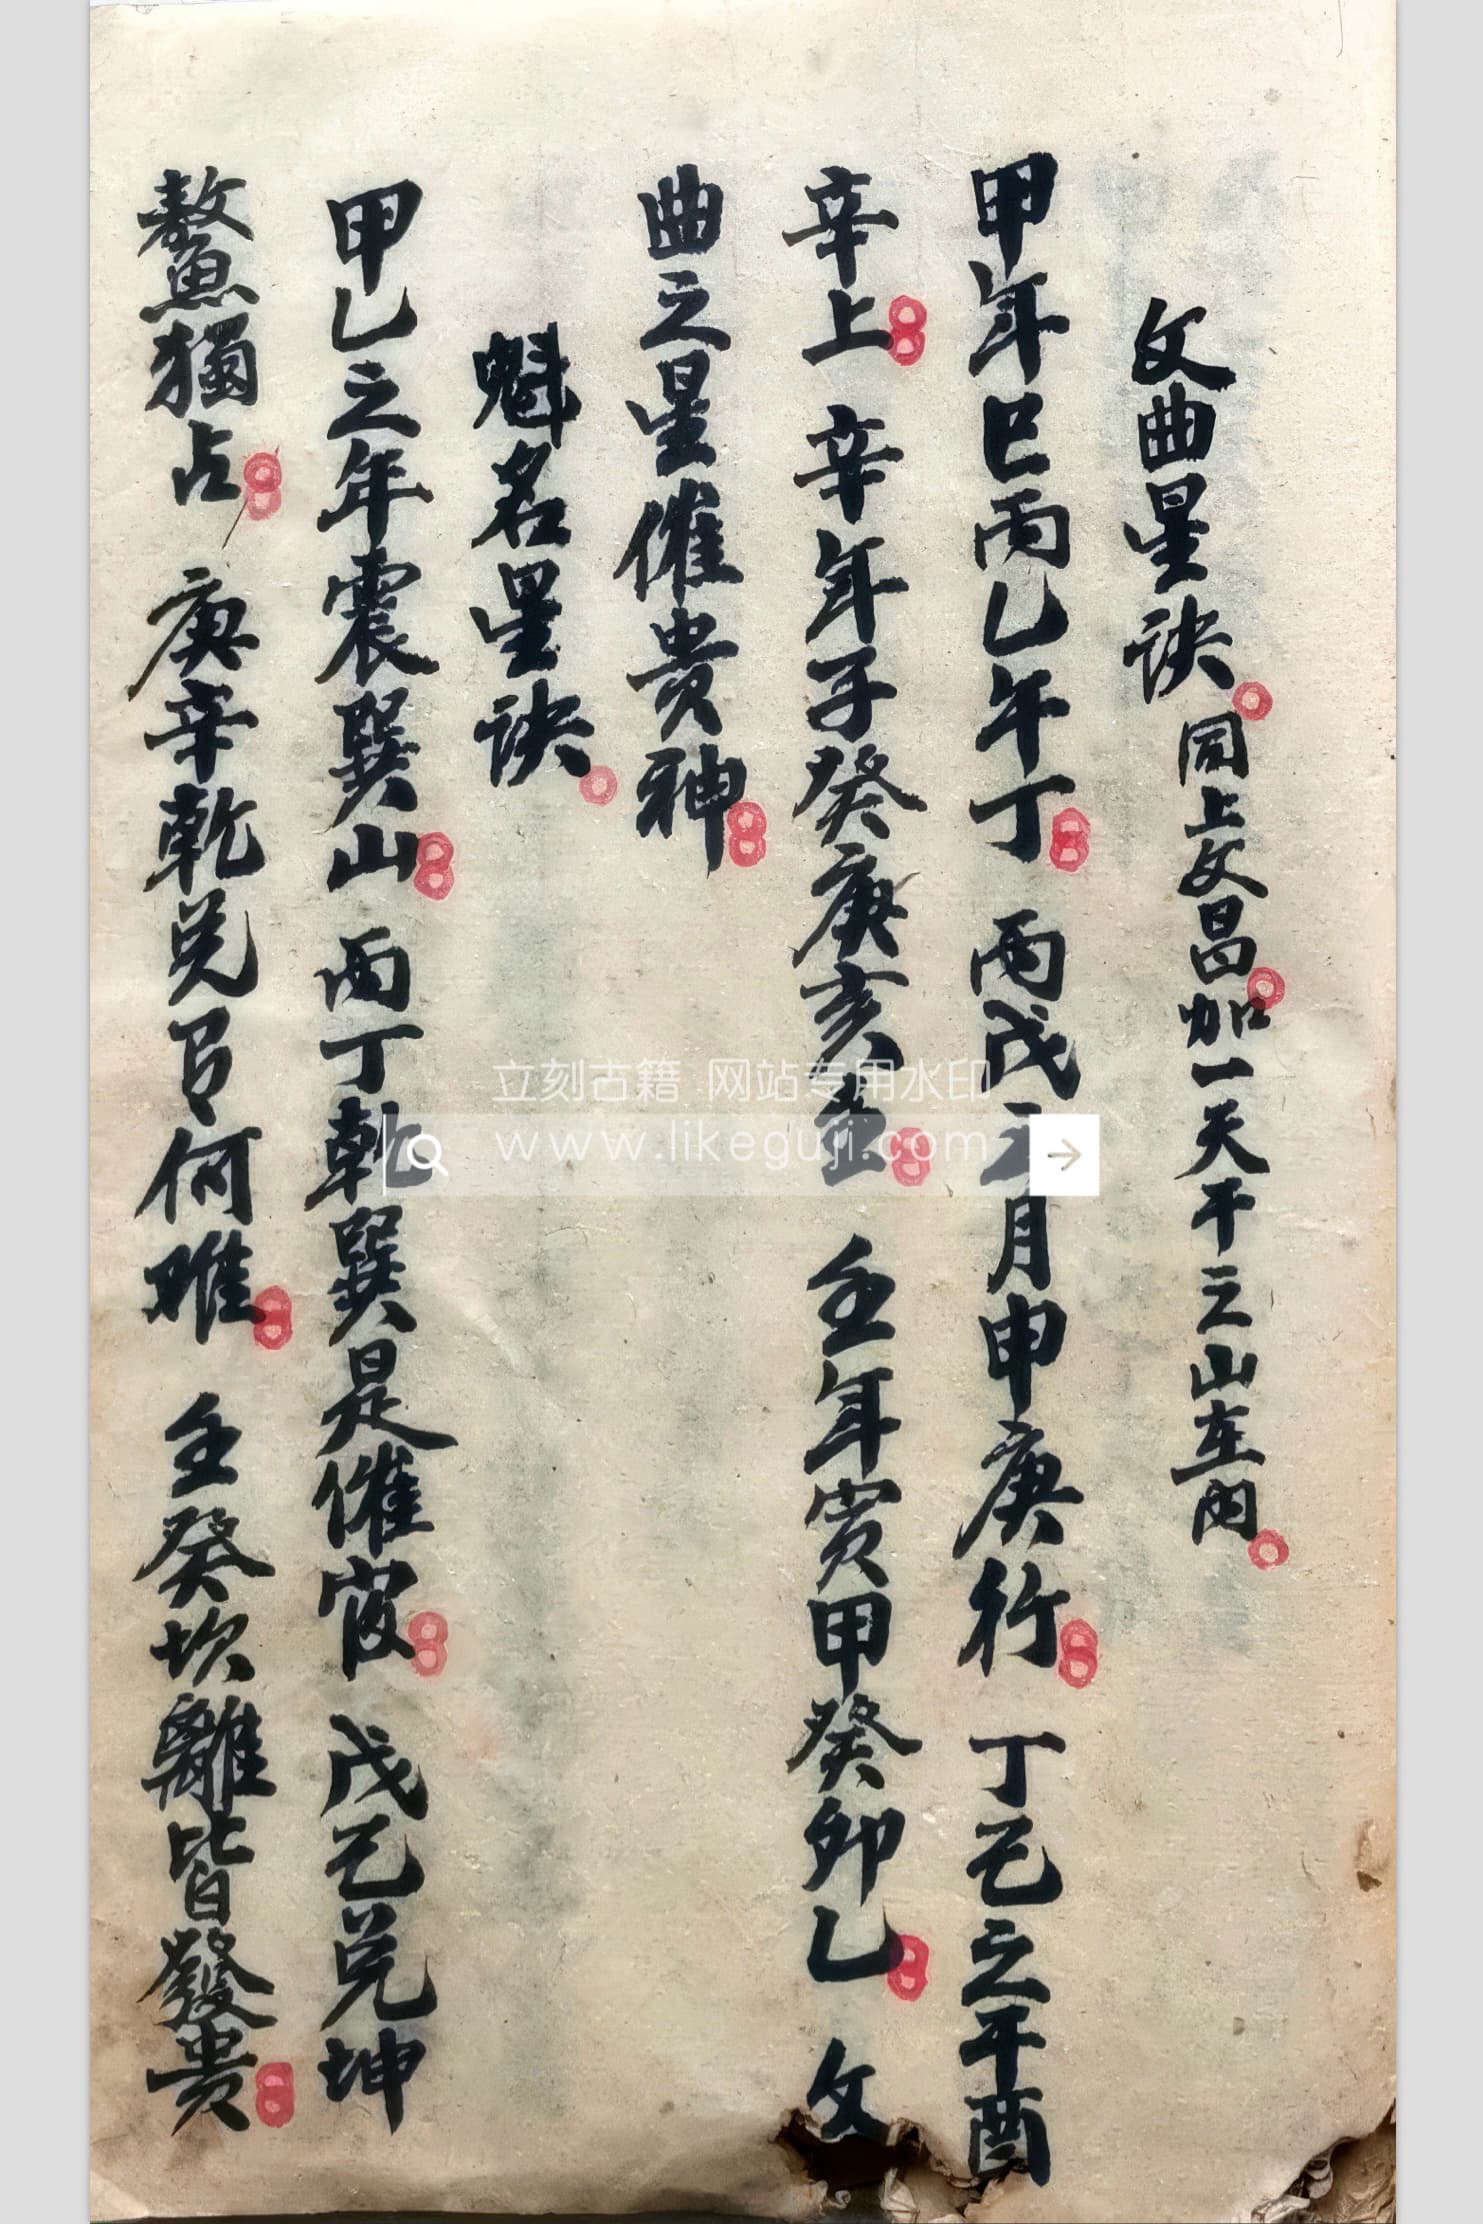 文曲星訣 同上文昌加一天干之山在內
甲年巳丙乙午丁 丙戊之月申庚行 丁己之年酉
辛上 辛年子癸庚亥壬 壬年寅甲癸卯乙 文
曲之星催貴神
魁名星訣
甲乙之年震巽山 丙丁乾巽是催官 戊己兌坤
鰲獨占 庚辛乾兌有何难 壬癸坎離皆發贵
立刻古籍 网站专用水印
www.likeguji.com